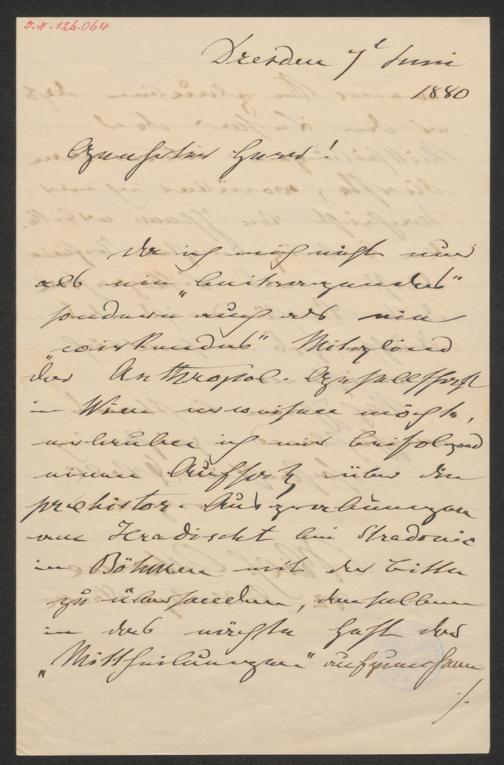 J.N. 126.064
Dresden 7t Juni
1880
Geehrter Herr!
Da ich mich nicht nur
als ein „beitragendes"
sondern auch als ein
„wirkendes" Mitglied
der Anthropol. Gesellschaft
in Wien erweisen möchte,
erlaube ich mir beifolgend
einen Aufsatz über die
praehistor. Ausgrabungen
am Hradischt bei Stradonic
in Böhmen mit der Bitte
zu übersenden, denselben
in das nächste Heft der
„Mittheilungen" aufzunehmen
./.